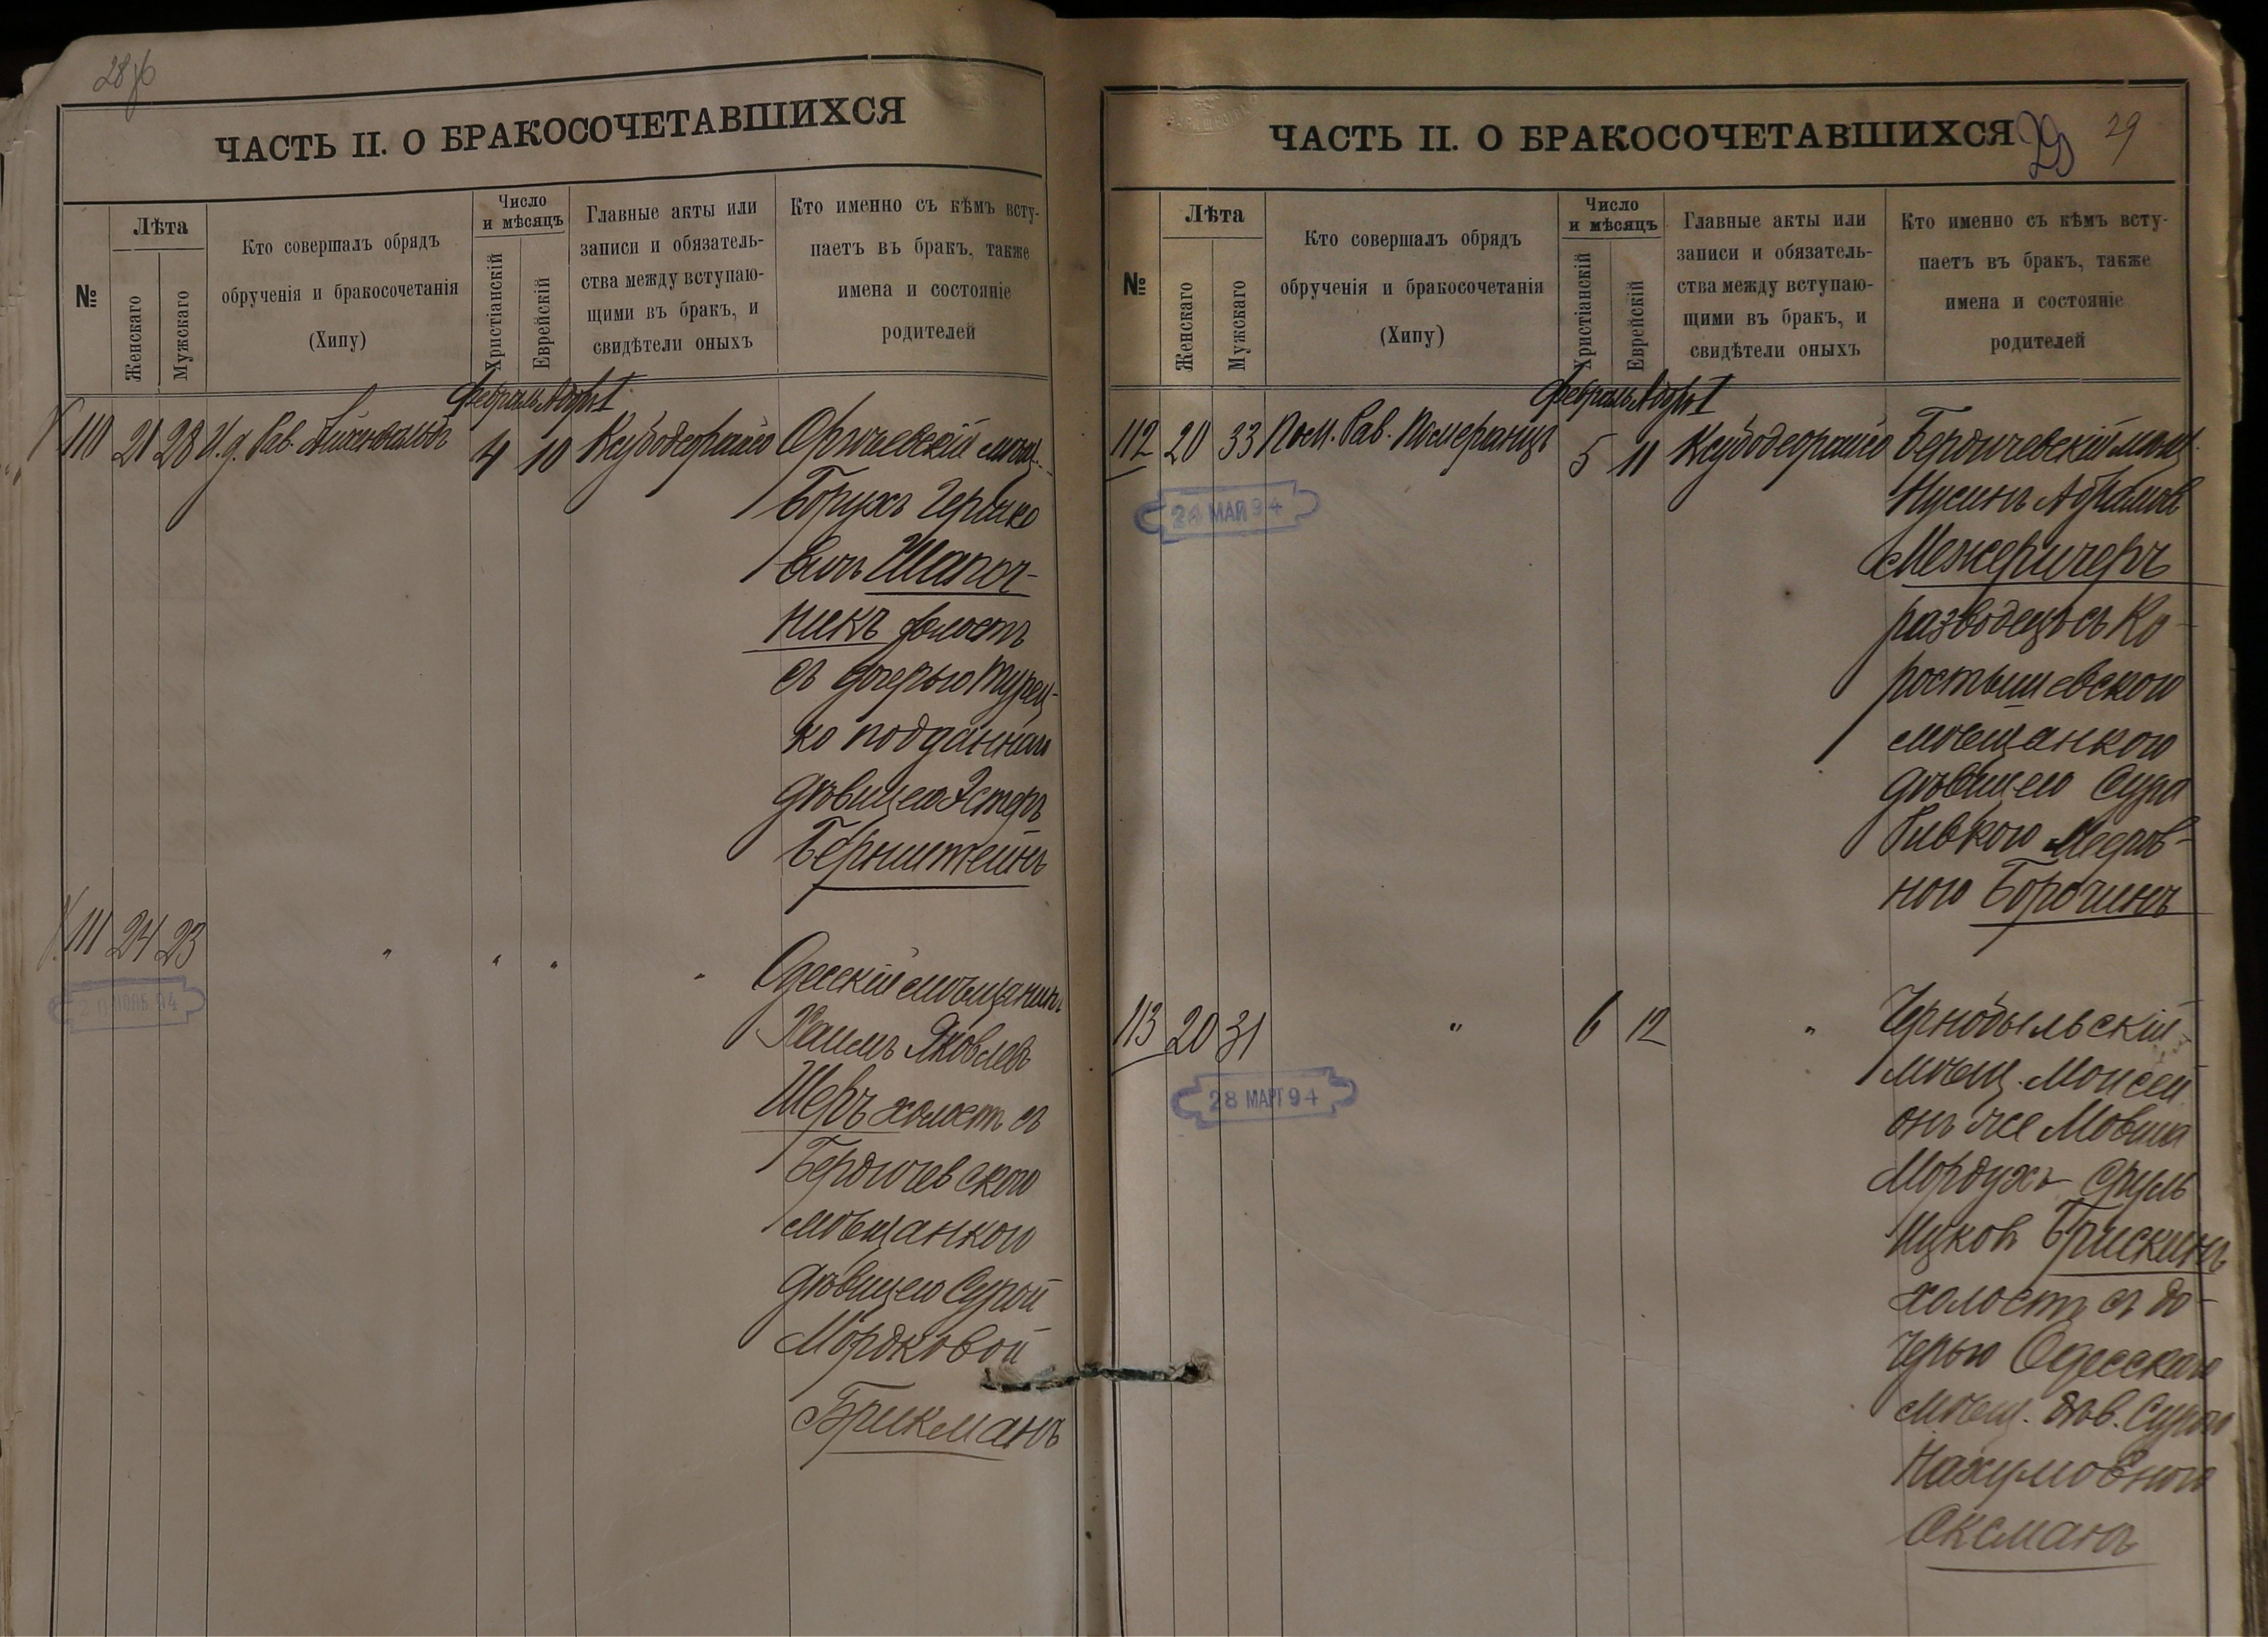 28 об
ЧАСТЬ II. О БРАКОСОЧЕТАВШИХСЯ
№
Лѣта
Женскаго
Мужскаго
Кто совершалъ обрядъ
обрученія и бракосочетанія
(Хипу)
Число
и мѣсяцъ
Христіанскій
Еврейскій
Главные акты или
записи и обязатель-
ства между вступаю-
щими въ бракъ, и
свидѣтели оныхъ
Кто именно съ кѣмъ всту-
паетъ въ бракъ, также
имена и состояніе
родителей
Февраль Адръ I
110 21 28 И. д. Рав. 4 10 Ксубодеорайсо мѣщ.
Борухъ Гершко
вичъ Шапоч-
никъ холостъ
съ дочерью Турец-
ко подданнаго
дѣвицею Эстеръ
Бернштейнъ
111 24 23 " " " " Одесскій мѣщанинъ
Хаимъ Яковлевъ
Шеръ холостъ съ
Бердичевскою
мѣщанкою
дѣвицею Сурой
Мордковой
Брикманъ
94
ЧАСТЬ II. О БРАКОСОЧЕТАВШИХСЯ
29 29
№
Лѣта
Женскаго
Мужскаго
Кто совершалъ обрядъ
обрученія и бракосочетанія
(Хипу)
Число
и мѣсяцъ
Христіанскій
Еврейскій
Главные акты или
записи и обязатель-
ства между вступаю-
щими въ бракъ, и
свидѣтели оныхъ
Кто именно съ кѣмъ всту-
паетъ въ бракъ, также
имена и состояніе
родителей
Февраль Адръ I
112 20 33 Пом. Рав. Померанцъ 5 11 Ксубодеорайсо Бердичевскій мѣщ.
Нусинъ Абрамовъ
Межеричеръ
разводецъ съ Ко-
ростышевскою
мѣщанкою
дѣвицею Сура
Ривкою Мееров-
ною Борочинъ
24 МАЙ 94
113 20 31 " 6 12 " Чернобыльскій
мѣщ. Моисей
онъ же Мовша
Мордухъ-Сруль
Ицковъ Брискинъ
холостъ съ до-
черью Одесскаго
мѣщ. дѣв. Сурою
Нахумовною
Оксманъ
28 МАРТ 94